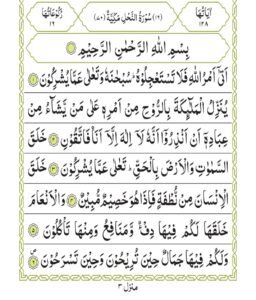 اٰيَاتُهَا ١٢٨
(١٦) سُوْرَةُ النَّحْلِ مَكِّيَّةٌ (٧٠)
رُكُوْعَاتُهَا ١٦
بِسْمِ اللّٰهِ الرَّحْمٰنِ الرَّحِيْمِ
اَتٰۤى اَمْرُ اللّٰهِ فَلَا تَسْتَعْجِلُوْهُ ؕ سُبْحٰنَهٗ وَتَعٰلٰى عَمَّا يُشْرِكُوْنَ ﴿١﴾
يُنَزِّلُ الْمَلٰٓئِكَةَ بِالرُّوْحِ مِنْ اَمْرِهٖ عَلٰى مَنْ يَّشَآءُ مِنْ
عِبَادِهٖۤ اَنْ اَنْذِرُوْۤا اَنَّهٗ لَاۤ اِلٰهَ اِلَّاۤ اَنَا فَاتَّقُوْنِ ﴿٢﴾ خَلَقَ
السَّمٰوٰتِ وَالْاَرْضَ بِالْحَقِّ ؕ تَعٰلٰى عَمَّا يُشْرِكُوْنَ ﴿٣﴾ خَلَقَ
الْاِنْسَانَ مِنْ نُّطْفَةٍ فَاِذَا هُوَ خَصِيْمٌ مُّبِيْنٌ ﴿٤﴾ وَالْاَنْعَامَ
خَلَقَهَا ۚ لَكُمْ فِيْهَا دِفْءٌ وَّمَنَافِعُ وَمِنْهَا تَاْكُلُوْنَ ﴿٥﴾
وَلَكُمْ فِيْهَا جَمَالٌ حِيْنَ تُرِيْحُوْنَ وَحِيْنَ تَسْرَحُوْنَ ﴿٦﴾
منزل ٣